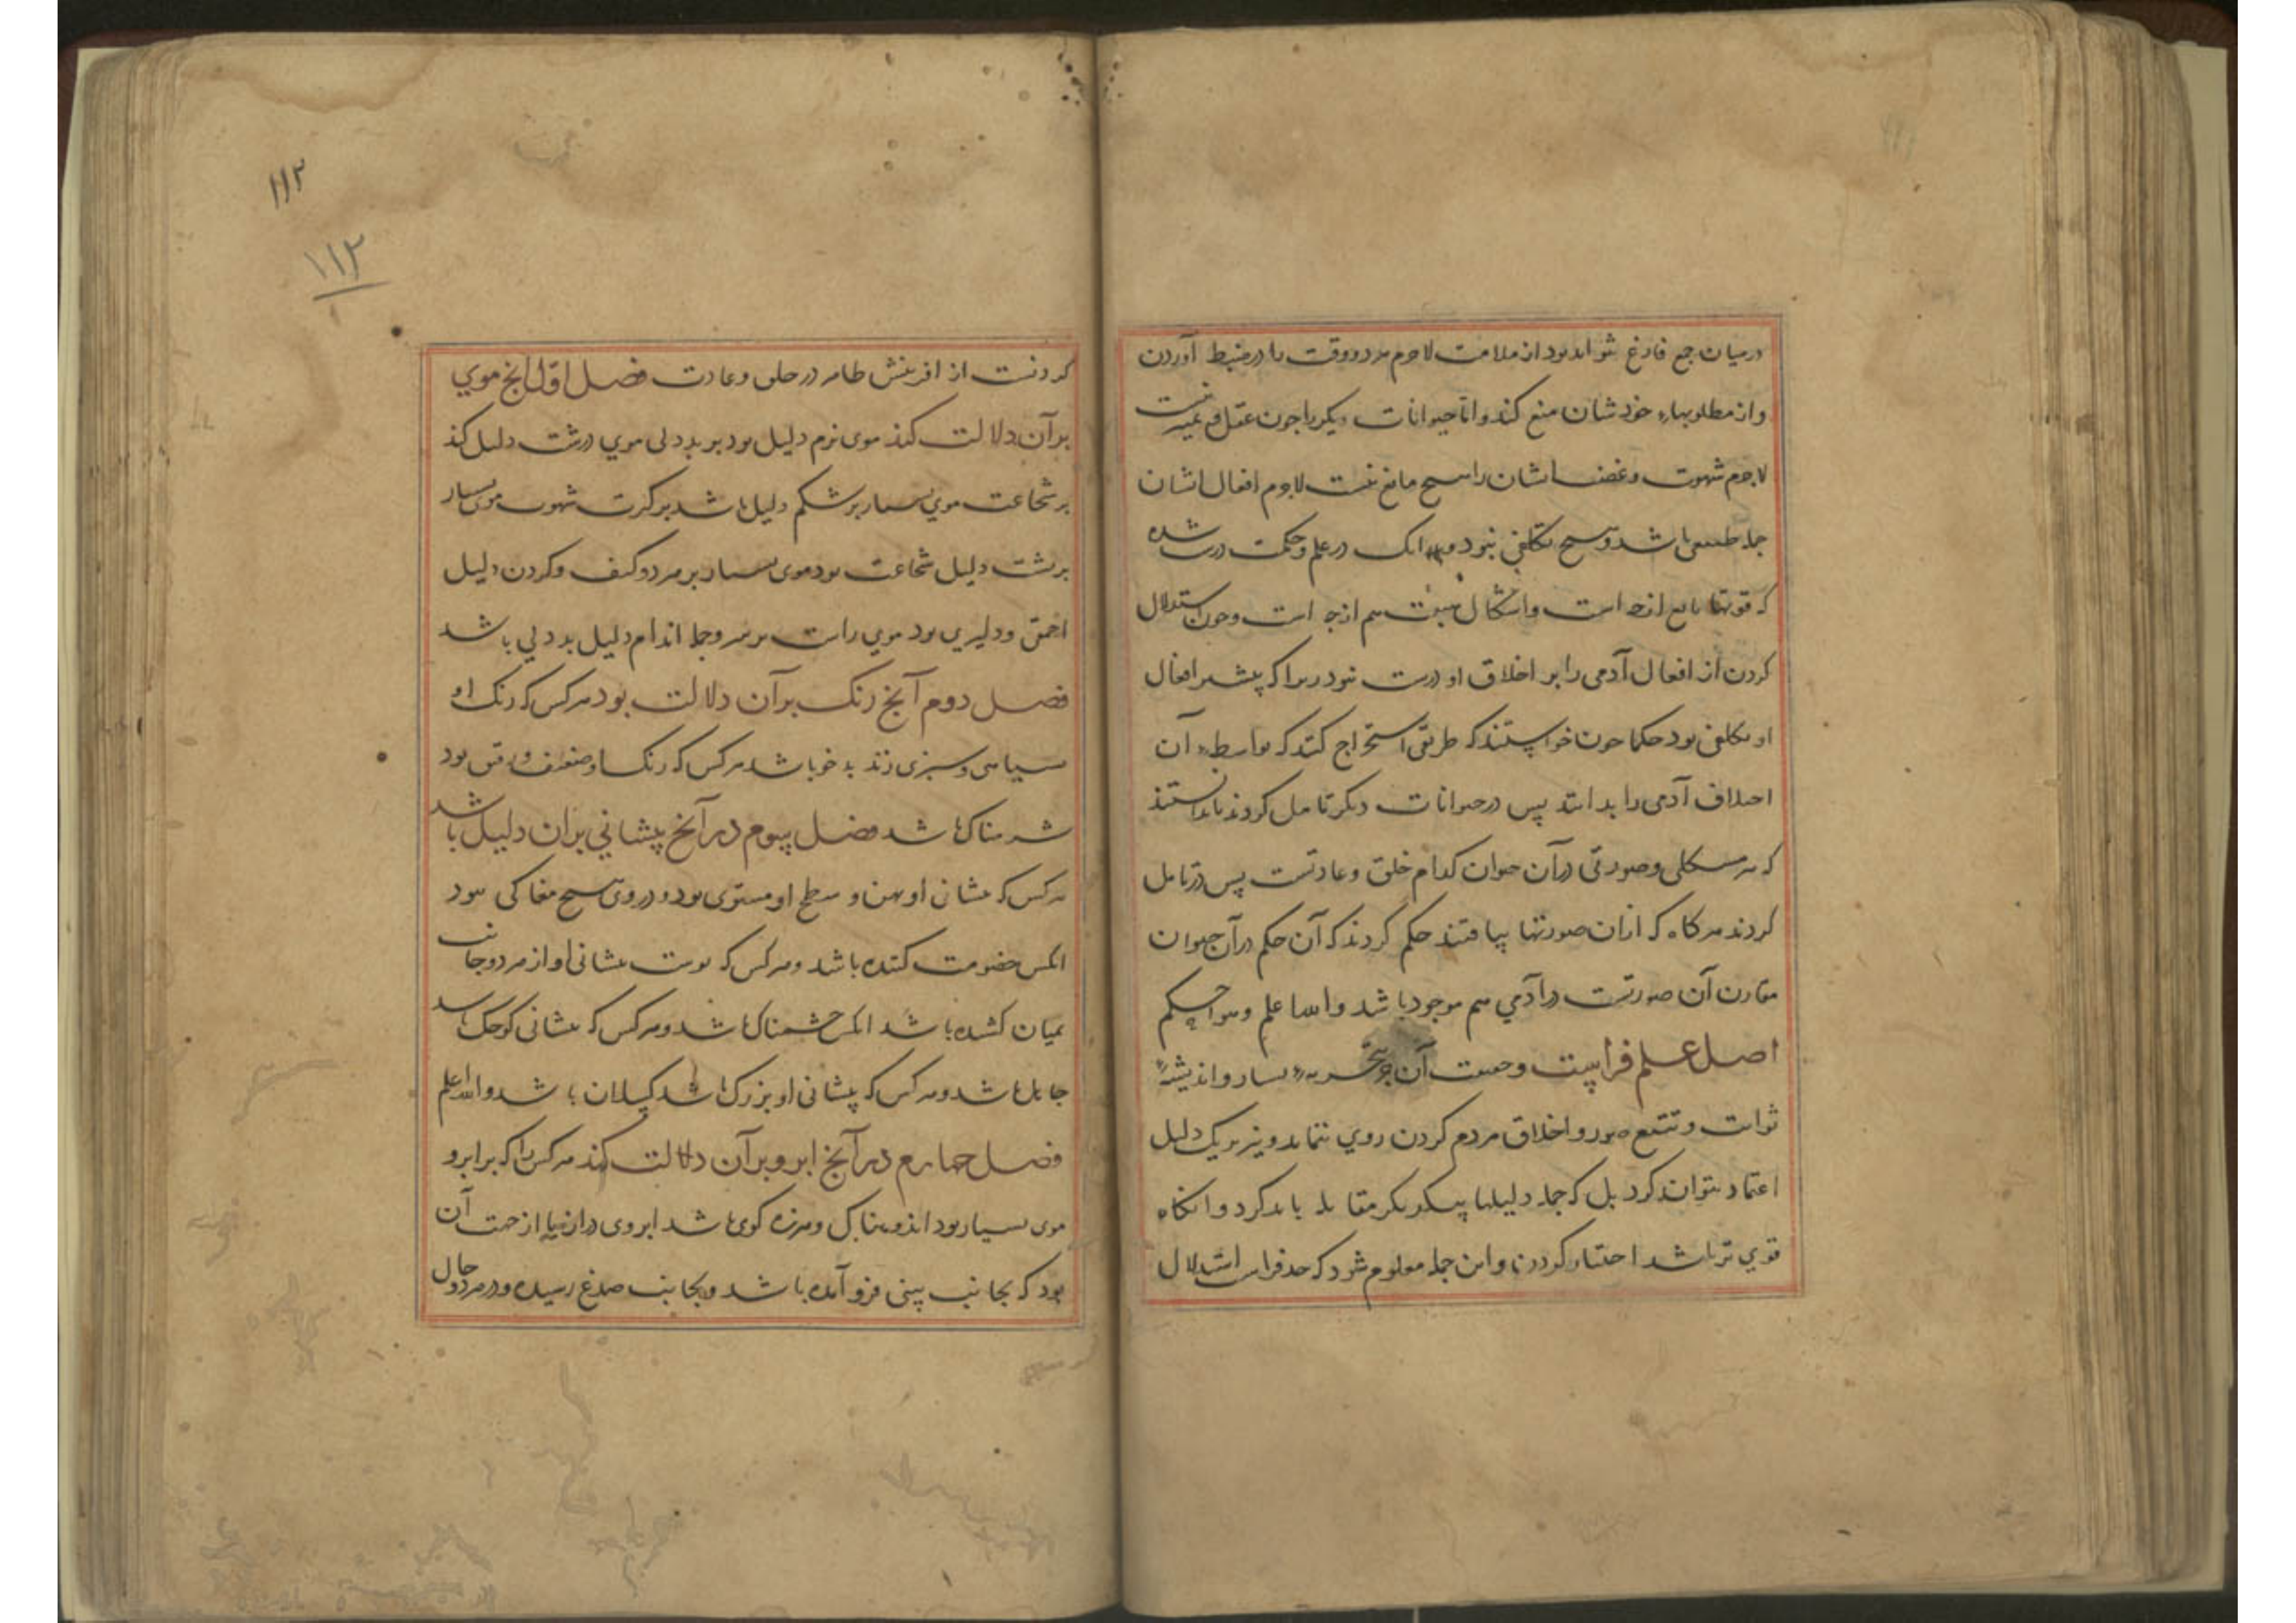 در میان جمع فارغ نتواند بود از ملامت لاجرم مردو وقت را در ضبط آوردن
واز مطلوبهاء خودشان منع کند واما حیوانات دیکر را جون عقل و تمیز نیست
لاجرم شهوت وغضب اشان را هیچ مانع نیست لاجرم افعال اشان
جمله طبیعی باشد وهیچ تکلفی نبود در علم وحکمت درست شده
که قوتها تابع مزاج است واشکال هم از مزاج است وجون استدلال
کردن از افعال آدمی را بر اخلاق او درست نبود زیرا که بیشتر افعال
او تکلفی بود حکما جون خواستند که طریقی استخراج کنند که بواسطه آن
اخلاق آدمی را بدانند پس در حیوانات دیکر تامل کردند تا بدانستند
که هر شکلی وصورتی در آن حیوان کدام خلق وعادتست پس در تامل
کردند هرکاه که ازان صورتها بیافتند حکم کردند که آن حکم در آن حیوان
مقارن آن صورتست در آدمی هم موجود باشد والله اعلم وهو احکم
اصل علم فراست وصیت آن جز بتجربه بسیار واندیشه
ثواب وتتبع صور واخلاق مردم کردن روی ننماید ونیز بر یک دلیل
اعتماد نتوان کرد بل که جمله دلیلها بیکدیکر مقابله باید کرد وانکاه
قوی تر باشد اختیار کردن واین جمله معلوم شود که حد فراست استدلال
۱۱۲
۱۱۲
کردنست از افرینش ظاهر در خلق وعادت فصل اول انج موی
بر آن دلالت کند موی نرم دلیل بود بر بد دلی موی درشت دلیل کند
بر شجاعت موی بسیار بر شکم دلیل باشد بر کثرت شهوت موی بسیار
بر پشت دلیل شجاعت بود موی بسیار بر هر دو کتف وکردن دلیل
احمق ودلیری بود موی راست بر سر وجمله اندام دلیل بد دلی باشد
فصل دوم آنج رنک بر آن دلالت بود هرکس که رنک او
سیاهی وسبزی زند بد خو باشد هرکس که رنک او ضعیف ورقیق بود
شرمناک باشد فصل سوم در آنج پیشانی بران دلیل باشد
هرکس که پیشانی او پهن و سطح او مستوی بود ودر وی هیچ مغاکی نبود
انکس خصومت کننده باشد وهرکس که پوست پیشانی او از هر دو جانب
بمیان کشیده باشد انکس خشمناک باشد وهرکس که پیشانی کوجک باشد
جاهل باشد وهرکس که پیشانی او بزرک باشد کسلان باشد والله اعلم
فصل جهارم در آنج ابرو بر آن دلالت کند هرکس را که بر ابرو
موی بسیار بود اندوهناک وهرزه کوی باشد ابروی دراز از جهت آن
بود که بجانب بینی فرو آمده باشد وبجانب صدغ رسیده ودر هر دو حال